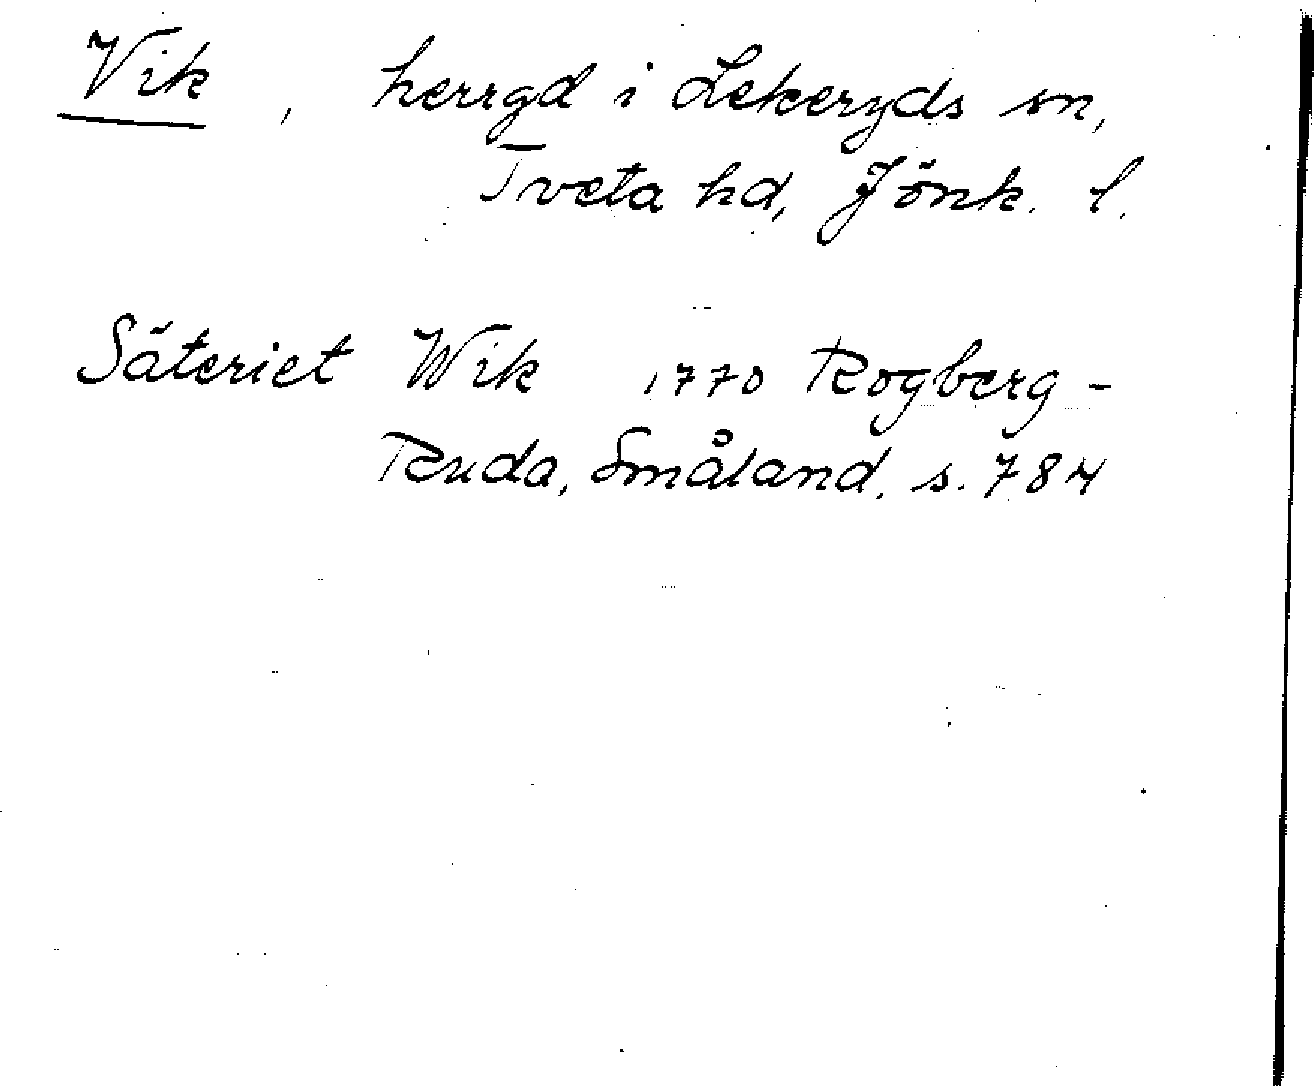 Vik, herrgd i Lekeryds sn,
Tveta hd, Jönk. l.
Säteriet Wik 1770 Rogberg-
Ruda, Småland, s. 784